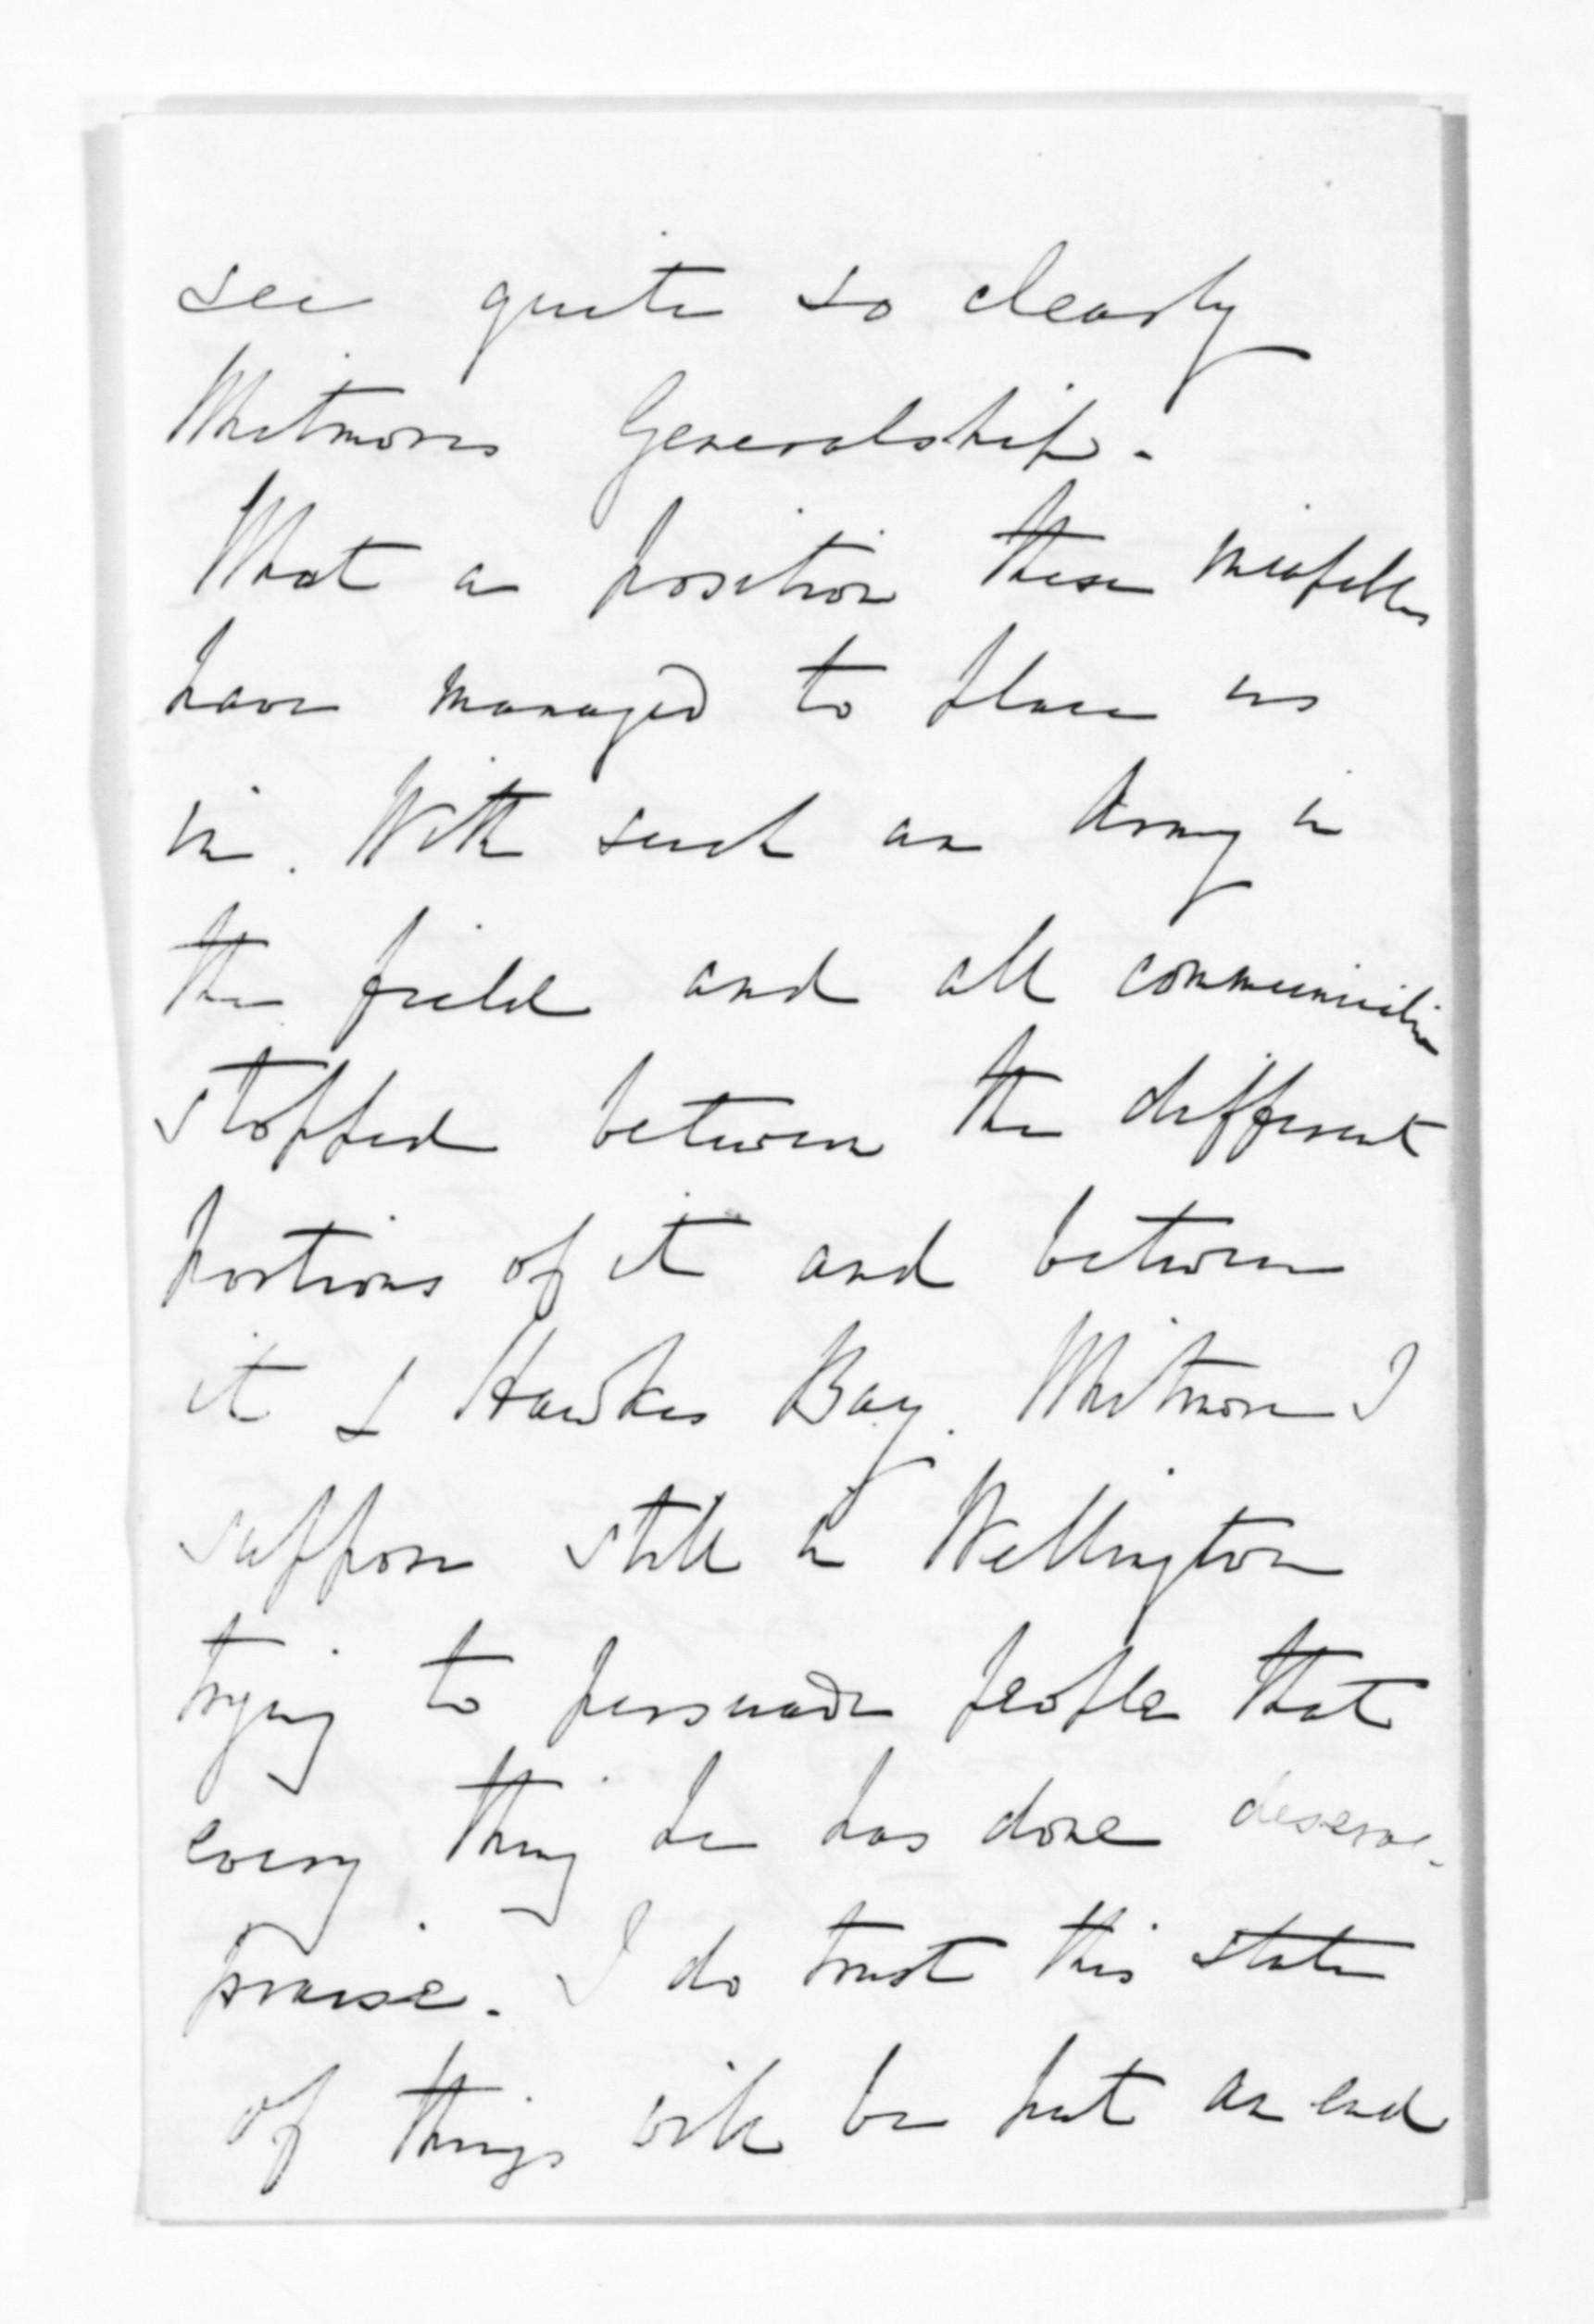 see quite so clearly
Whitmores Generalship.
What a position these
have managed to place us
in. With such an Army in
the field and all communication
stopped between the different
portions of it and between
it & Hawkes Bay. Whitmore I
suppose still in Wellington
trying to persuade people that
every thing he has done deserves
praise. I do trust this state
of things will be put an end